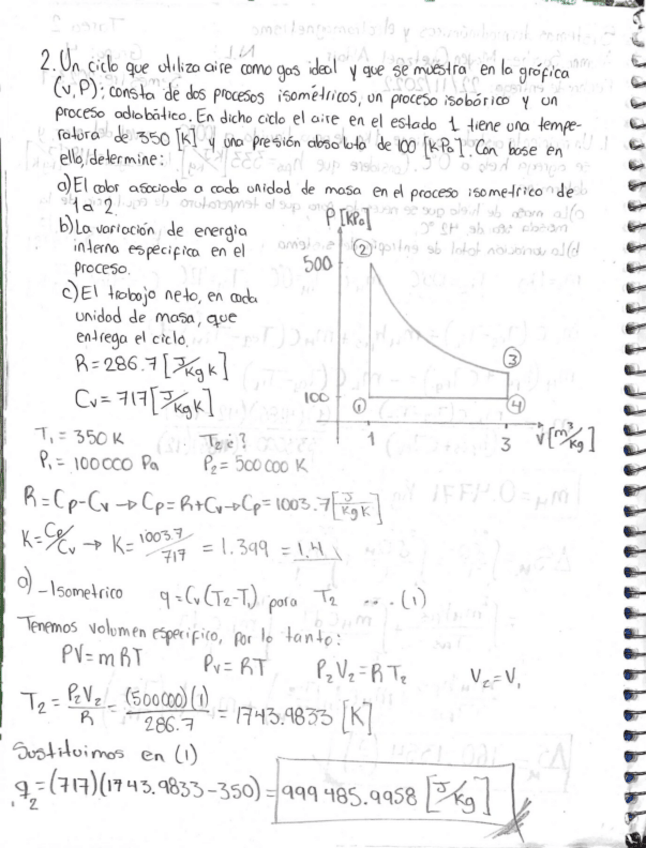 2. Un ciclo que utiliza aire como gas ideal y que se muestra en la gráfica
(v,P); consta de dos procesos isométricos, un proceso isobárico y un
proceso adiabático. En dicho ciclo el aire en el estado 1 tiene una tempe-
ratura de 350 [K] y una presión absoluta de 100 [KPa]. Con base en
ello, determine:
a) El calor asociado a cada unidad de masa en el proceso isometrico de
1 a 2.
b) La variación de energia
interna especifica en el
proceso.
c) El trabajo neto, en cada
unidad de masa, que
entrega el ciclo.
R = 286.7 [J/Kg K]
Cv = 717 [J/Kg K]
P [KPa]
500
2
3
100
1
4
1
3
V [m³/kg]
T₁ = 350 K
T₂ = ?
P₁ = 100 000 Pa
P₂ = 500 000 K
R = Cp - Cv → Cp = R + Cv → Cp = 1003.7 [J/Kg K]
K = Cp/Cv → K = 1003.7/717 = 1.399 = 1.4
a) - Isometrico q = Cv (T₂ - T₁) para T₂ ... (1)
Tenemos volumen especifico, por lo tanto:
PV = mRT Pv = RT P₂V₂ = RT₂ V₂ = V₁
T₂ = P₂V₂/R = (500000)(1)/286.7 = 1743.9833 [K]
Sustituimos en (1)
₁q₂ = (717)(1743.9833 - 350) = 999 485.9958 [J/Kg]